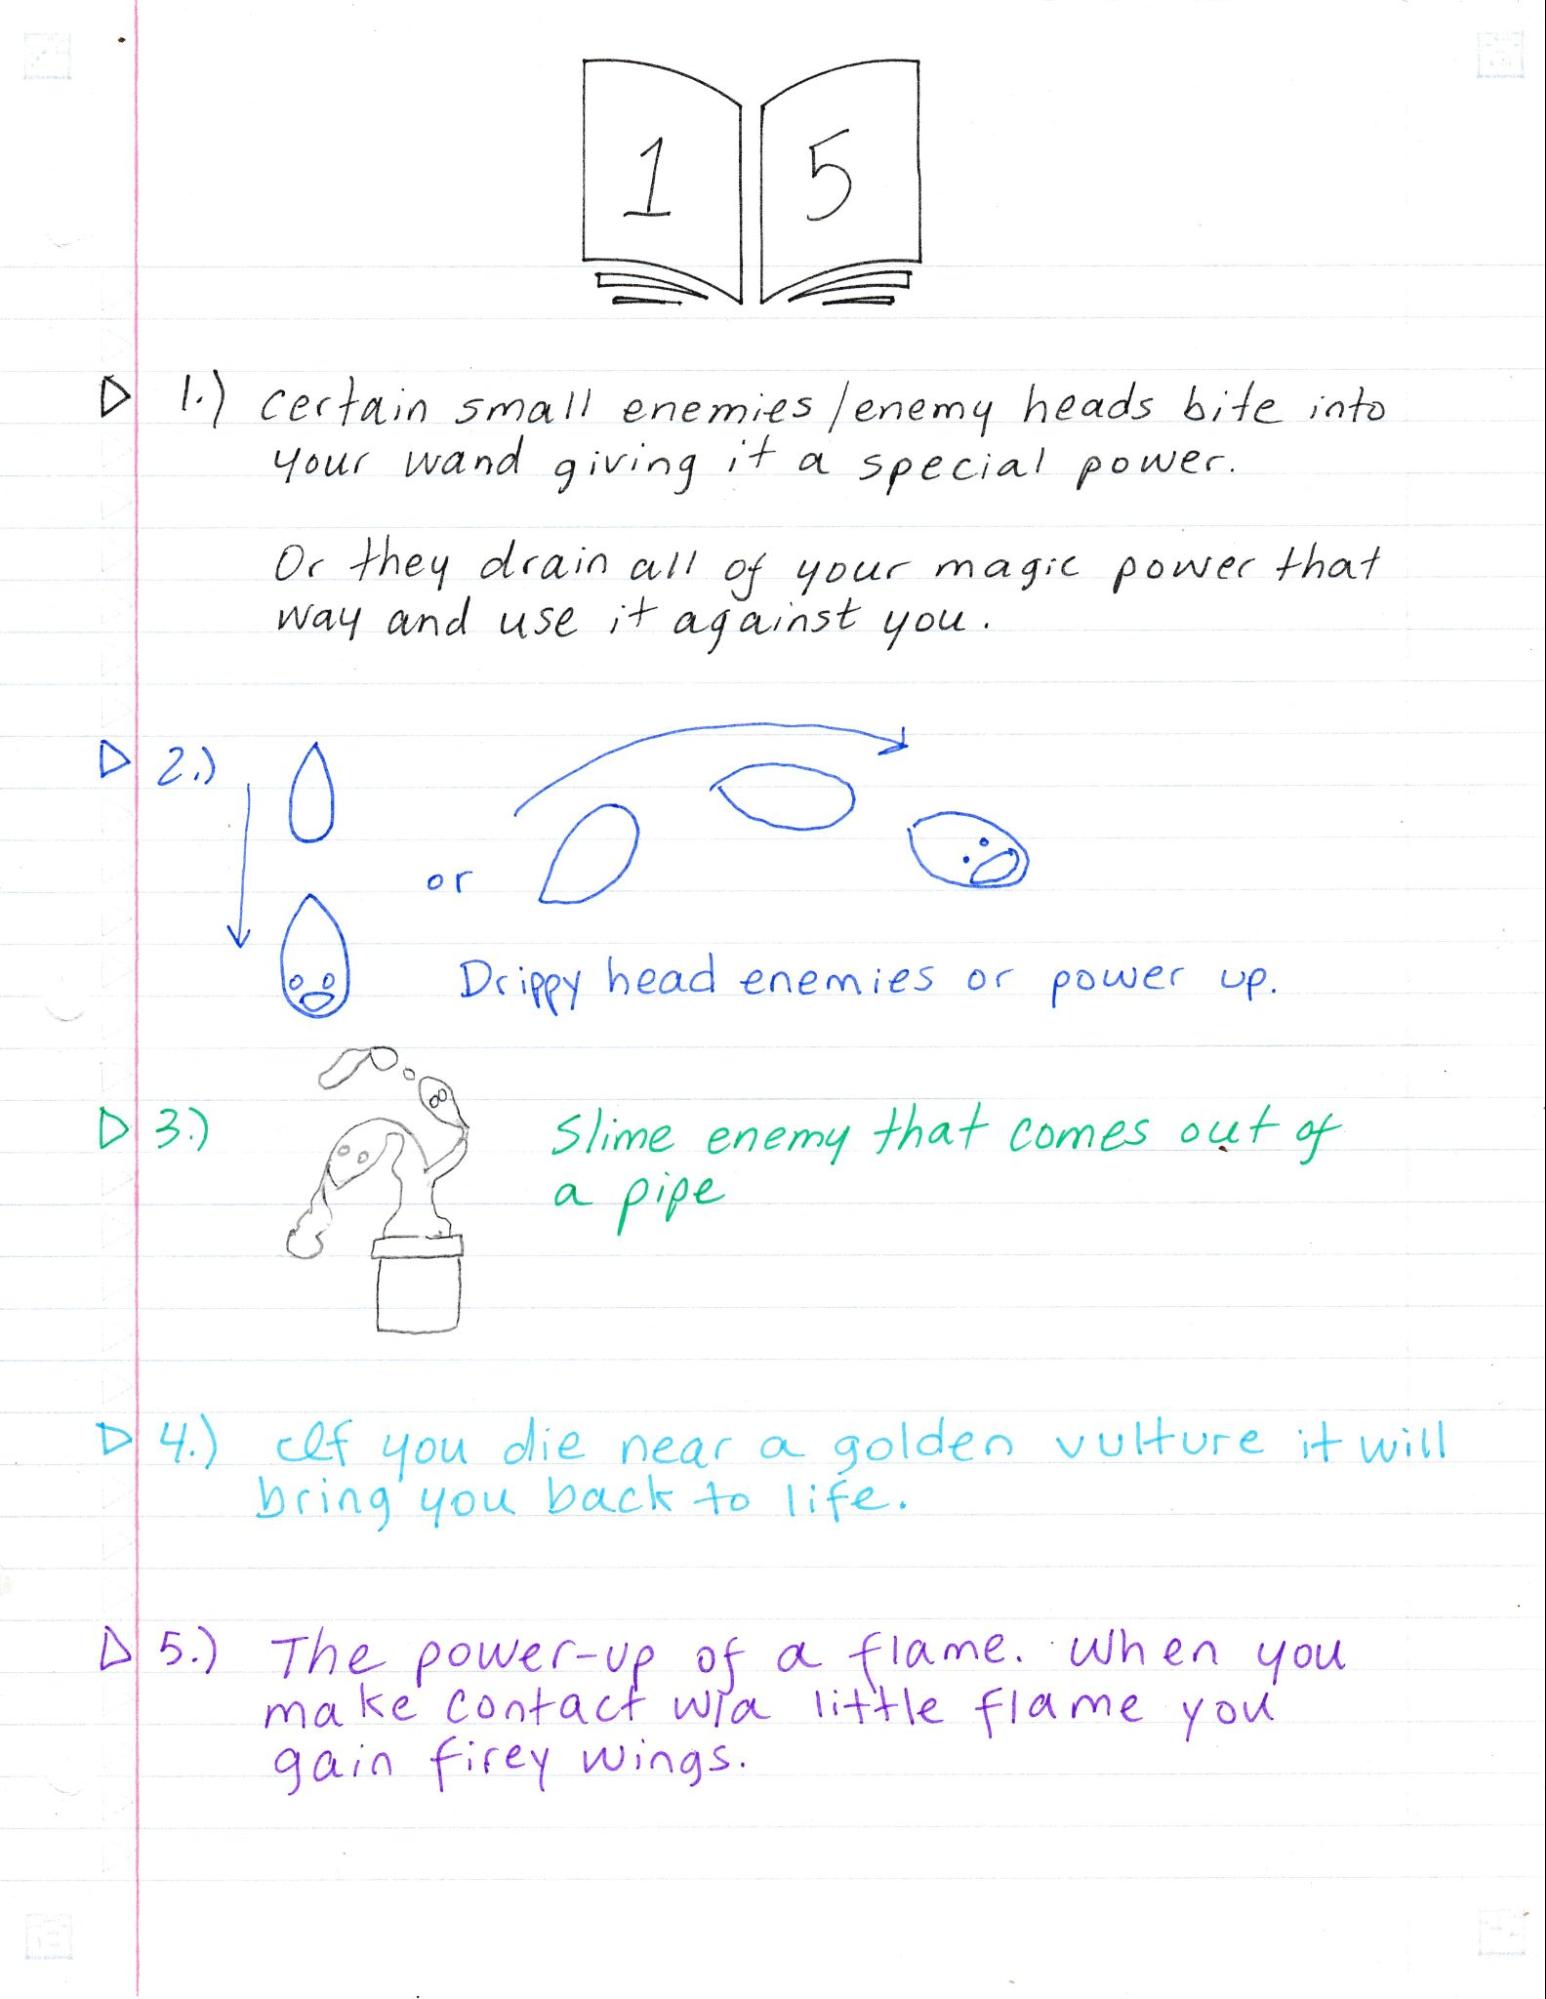 1 5
1.) Certain small enemies/enemy heads bite into
your wand giving it a special power.
Or they drain all of your magic power that
way and use it against you.
2.)
or
Drippy head enemies or power up.
3.) Slime enemy that comes out of
a pipe
4.) If you die near a golden vulture it will
bring you back to life.
5.) The power-up of a flame. When you
make contact w/a little flame you
gain firey wings.